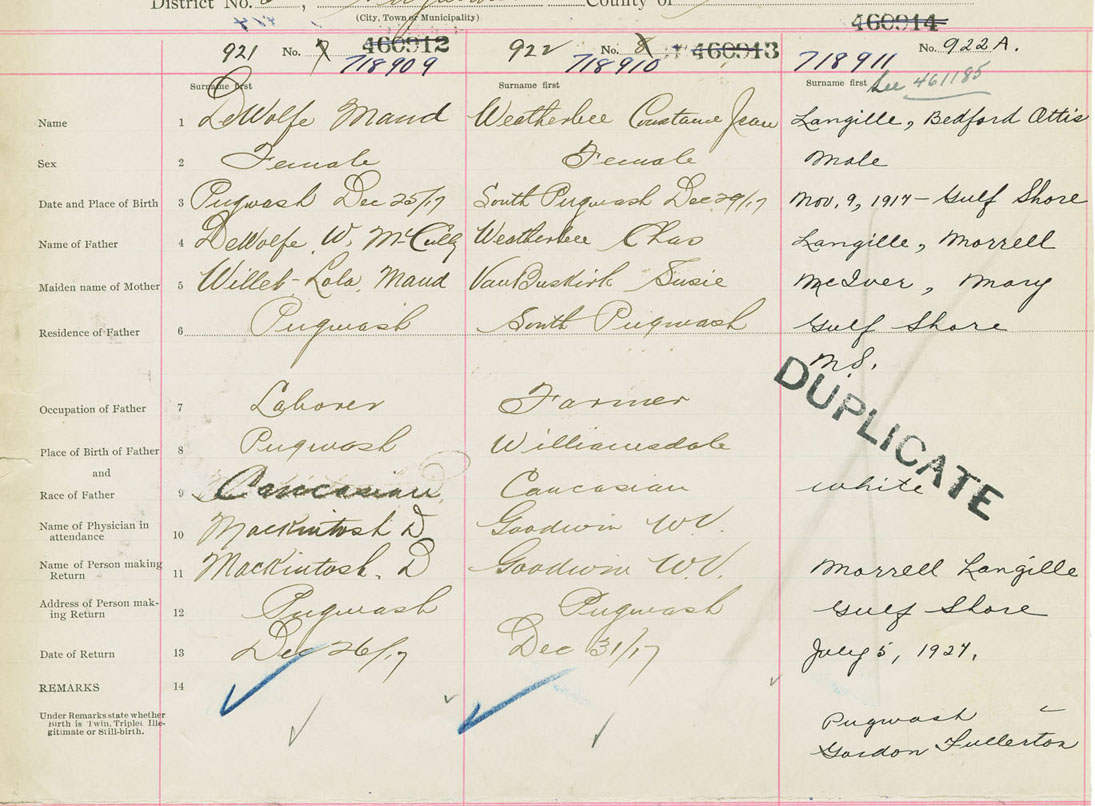 District No.
County of
(City, Town or Municipality)
921 No. 7 460912
718909
922 No. 8 460913
718910
460914
No. 922A.
718911
Surname first
Surname first
Surname first See 461185
Name 1 DeWolfe Maud Weatherbee Constance Jean Langille, Bedford Attis
Sex 2 Female Female Male
Date and Place of Birth 3 Pugwash Dec 25/17 South Pugwash Dec 29/17 Nov. 9, 1917 - Gulf Shore
Name of Father 4 DeWolfe W. McCully Weatherbee Chas Langille, Morrell
Maiden name of Mother 5 Willet - Lola Maud VanBuskirk Susie McIver, Mary
Residence of Father 6 Pugwash South Pugwash Gulf Shore
N.S.
DUPLICATE
Occupation of Father 7 Laborer Farmer
Place of Birth of Father 8 Pugwash Williamsdale
and
Race of Father 9 Caucasian Caucasian white
Name of Physician in
attendance 10 Mackintosh D Goodwin W.V.
Name of Person making
Return 11 Mackintosh. D Goodwin W.V. Morrell Langille
Address of Person mak-
ing Return 12 Pugwash Pugwash Gulf Shore
Date of Return 13 Dec 26/17 Dec 31/17 July 5, 1927.
REMARKS 14
Under Remarks state whether
birth is Twin, Triplet, Ille-
gitimate or Still-birth.
Pugwash
Gordon Fullerton